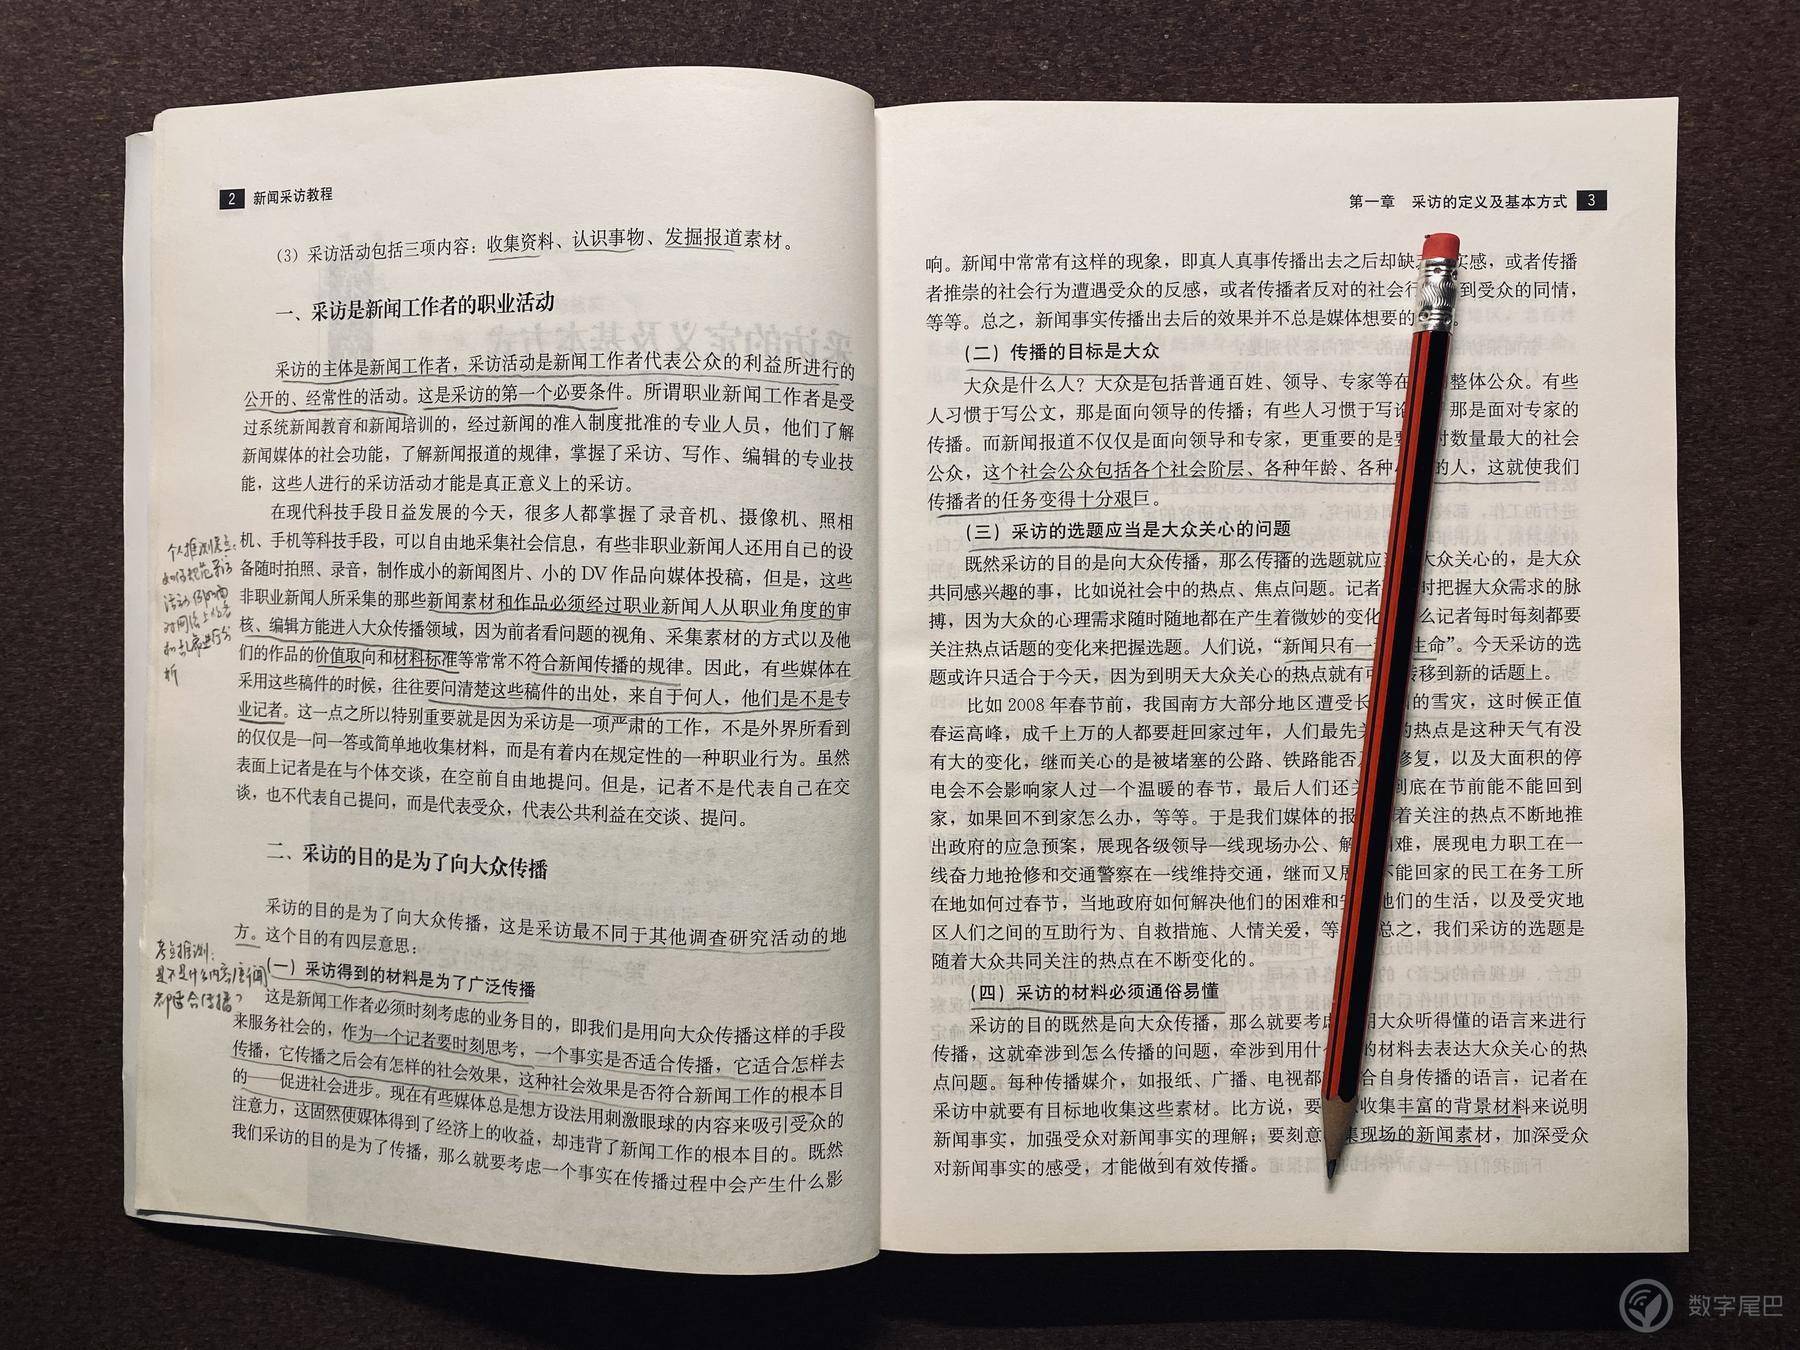 2 新闻采访教程
（3）采访活动包括三项内容：收集资料、认识事物、发掘报道素材。
一、采访是新闻工作者的职业活动
采访的主体是新闻工作者，采访活动是新闻工作者代表公众的利益所进行的
公开的、经常性的活动。这是采访的第一个必要条件。所谓职业新闻工作者是受
过系统新闻教育和新闻培训的，经过新闻的准入制度批准的专业人员，他们了解
新闻媒体的社会功能，了解新闻报道的规律，掌握了采访、写作、编辑的专业技
能，这些人进行的采访活动才能是真正意义上的采访。
在现代科技手段日益发展的今天，很多人都掌握了录音机、摄像机、照相
机、手机等科技手段，可以自由地采集社会信息，有些非职业新闻人还用自己的设
备随时拍照、录音，制作成小的新闻图片、小的 DV 作品向媒体投稿，但是，这些
非职业新闻人所采集的那些新闻素材和作品必须经过职业新闻人从职业角度的审
核、编辑方能进入大众传播领域，因为前者看问题的视角、采集素材的方式以及他
们的作品的价值取向和材料标准等常常不符合新闻传播的规律。因此，有些媒体在
采用这些稿件的时候，往往要问清楚这些稿件的出处，来自于何人，他们是不是专
业记者。这一点之所以特别重要就是因为采访是一项严肃的工作，不是外界所看到
的仅仅是一问一答或简单地收集材料，而是有着内在规定性的一种职业行为。虽然
表面上记者是在与个体交谈，在空前自由地提问。但是，记者不是代表自己在交
谈，也不代表自己提问，而是代表受众，代表公共利益在交谈、提问。
二、采访的目的是为了向大众传播
采访的目的是为了向大众传播，这是采访最不同于其他调查研究活动的地
方。这个目的有四层意思：
（一）采访得到的材料是为了广泛传播
这是新闻工作者必须时刻考虑的业务目的，即我们是用向大众传播这样的手段
来服务社会的，作为一个记者要时刻思考，一个事实是否适合传播，它适合怎样去
传播，它传播之后会有怎样的社会效果，这种社会效果是否符合新闻工作的根本目
的——促进社会进步。现在有些媒体总是想方设法用刺激眼球的内容来吸引受众的
注意力，这固然使媒体得到了经济上的收益，却违背了新闻工作的根本目的。既然
我们采访的目的是为了传播，那么就要考虑一个事实在传播过程中会产生什么影
个人推测考点：
如何规范采访
活动
对网络上
和乱象进行分
析
考点推测：
是不是什么内容/画面
都适合传播？
第一章 采访的定义及基本方式 3
响。新闻中常常有这样的现象，即真人真事传播出去之后却缺 实感，或者传播
者推崇的社会行为遭遇受众的反感，或者传播者反对的社会行 到受众的同情，
等等。总之，新闻事实传播出去后的效果并不总是媒体想要的 。
（二）传播的目标是大众
大众是什么人？大众是包括普通百姓、领导、专家等在 整体公众。有些
人习惯于写公文，那是面向领导的传播；有些人习惯于写论 那是面对专家的
传播。而新闻报道不仅仅是面向领导和专家，更重要的是要 对数量最大的社会
公众，这个社会公众包括各个社会阶层、各种年龄、各种 的人，这就使我们
传播者的任务变得十分艰巨。
（三）采访的选题应当是大众关心的问题
既然采访的目的是向大众传播，那么传播的选题就应 大众关心的，是大众
共同感兴趣的事，比如说社会中的热点、焦点问题。记者 时把握大众需求的脉
搏，因为大众的心理需求随时随地都在产生着微妙的变化 么记者每时每刻都要
关注热点话题的变化来把握选题。人们说，“新闻只有一 生命”。今天采访的选
题或许只适合于今天，因为到明天大众关心的热点就有可 转移到新的话题上。
比如 2008 年春节前，我国南方大部分地区遭受长 的雪灾，这时候正值
春运高峰，成千上万的人都要赶回家过年，人们最先关 的热点是这种天气有没
有大的变化，继而关心的是被堵塞的公路、铁路能否 修复，以及大面积的停
电会不会影响家人过一个温暖的春节，最后人们还关 到底在节前能不能回到
家，如果回不到家怎么办，等等。于是我们媒体的报 着关注的热点不断地推
出政府的应急预案，展现各级领导一线现场办公、解 困难，展现电力职工在一
线奋力地抢修和交通警察在一线维持交通，继而又展 不能回家的民工在务工所
在地如何过春节，当地政府如何解决他们的困难和 他们的生活，以及受灾地
区人们之间的互助行为、自救措施、人情关爱，等 总之，我们采访的选题是
随着大众共同关注的热点在不断变化的。
（四）采访的材料必须通俗易懂
采访的目的既然是向大众传播，那么就要考 用大众听得懂的语言来进行
传播，这就牵涉到怎么传播的问题，牵涉到用什 的材料去表达大众关心的热
点问题。每种传播媒介，如报纸、广播、电视都 合自身传播的语言，记者在
采访中就要有目标地收集这些素材。比方说，要 收集丰富的背景材料来说明
新闻事实，加强受众对新闻事实的理解；要刻意 集现场的新闻素材，加深受众
对新闻事实的感受，才能做到有效传播。
数字尾巴